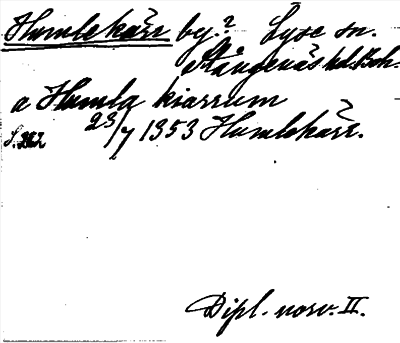 Humlekärr by? Lyse sn.
Stångenäs hd. Boh.
a Humla kiarrum
S. 262 23/7 1353 Humlekärr.
Dipl. norv. II.